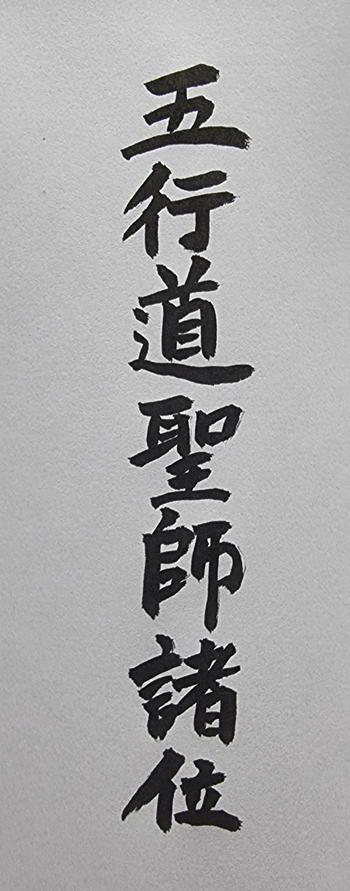 五行道聖師諸位